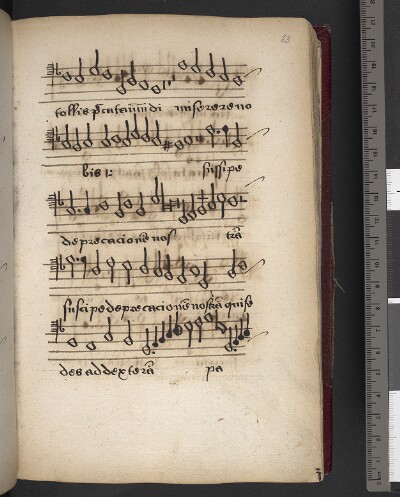 23
tollis pcta mũdi misererero
bis :
sussipe
deprecacionẽ nos trã
suscipe deprecacionẽ nostrã qui se
des ad dexterã pa